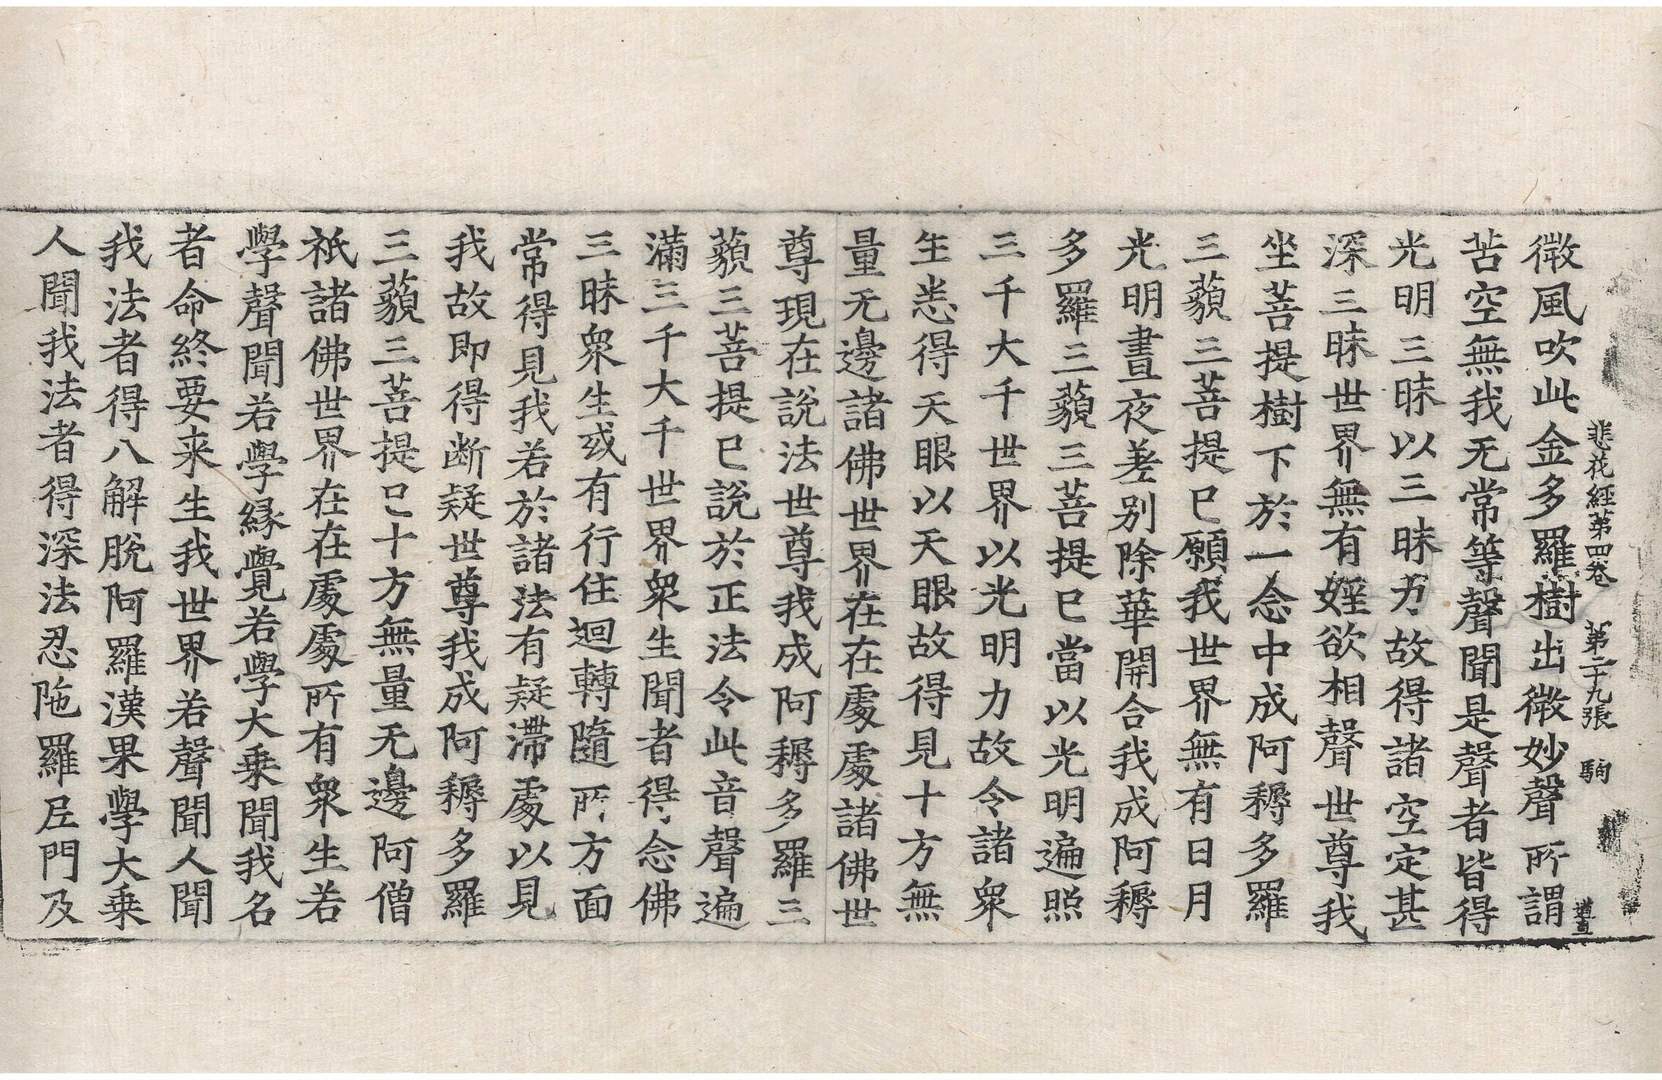 悲花經第四卷 第二十九張 駒
微風吹此金多羅樹出微妙聲所謂
苦空無我无常等聲聞是聲者皆得
光明三昧以三昧力故得諸空定甚
深三昧世界無有婬欲相聲世尊我
坐菩提樹下於一念中成阿耨多羅
三藐三菩提已願我世界無有日月
光明晝夜差別除華開合我成阿耨
多羅三藐三菩提已當以光明遍照
三千大千世界以光明力故令諸衆
生悉得天眼以天眼故得見十方無
量无邊諸佛世界在在處處諸佛世
尊現在說法世尊我成阿耨多羅三
藐三菩提已說於正法令此音聲遍
滿三千大千世界衆生聞者得念佛
三昧衆生或有行住迴轉隨所方面
常得見我若於諸法有疑滯處以見
我故即得断疑世尊我成阿耨多羅
三藐三菩提已十方無量无邊阿僧
祇諸佛世界在在處處所有衆生若
學聲聞若學緣覺若學大乘聞我名
者命終要来生我世界若聲聞人聞
我法者得八解脫阿羅漢果學大乘
人聞我法者得深法忍陁羅尼門及